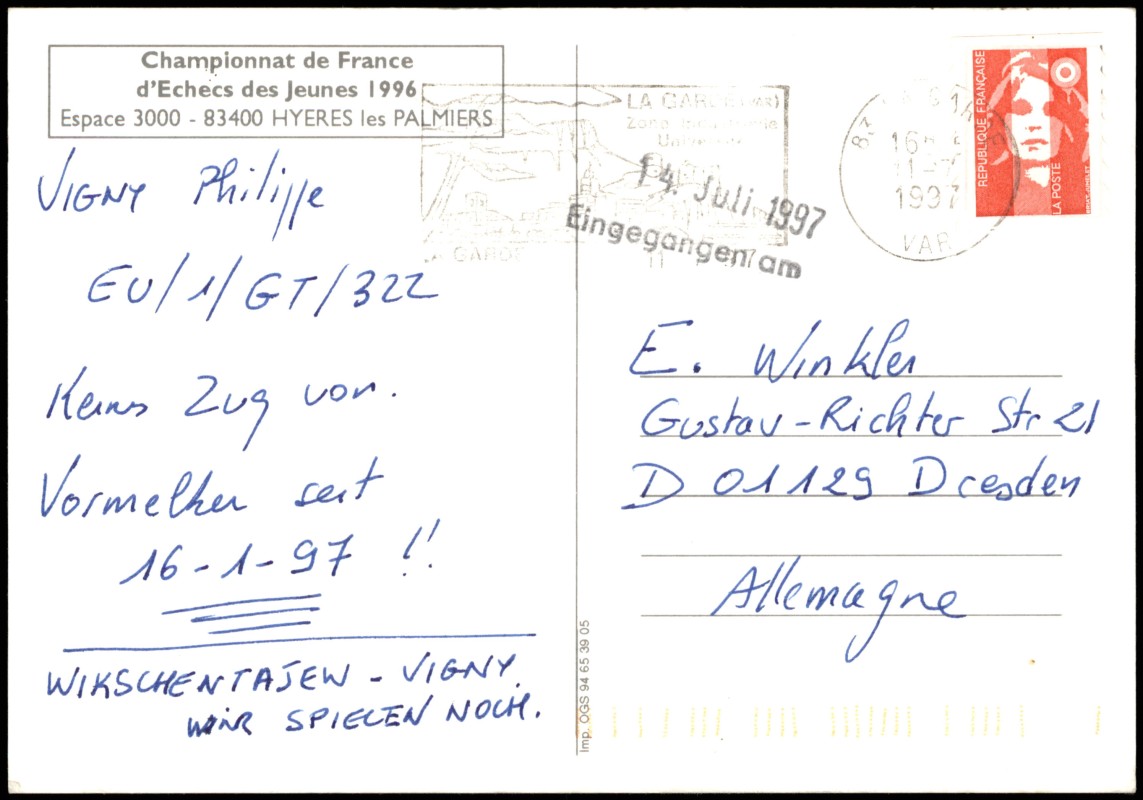 Championnat de France
d'Echecs des Jeunes 1996
Espace 3000 - 83400 HYERES les PALMIERS
VIGNY Philippe
EU/1/GT/322
Keins Zug von.
Vormelker seit
16-1-97 !!
WIKSCHENTAJEW - VIGNY.
WIR SPIELEN NOCH.
LA GARDE (VAR)
Zone Industrielle
LA GARDE
14. Juli 1997
Eingegangen am
1997
VAR
RÉPUBLIQUE FRANÇAISE
LA POSTE
E. Winkler
Gustav-Richter Str 21
D 01129 Dresden
Allemagne
Imp. OGS 94 65 39 05